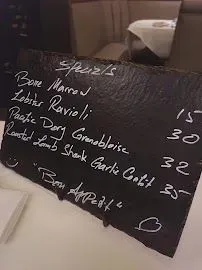 Specials
Bone Marrow 15
Lobster Ravioli 30
Pacific Dory Grenobloise 32
Roasted Lamb Shank Garlic Confit 35
"Bon Appetit"